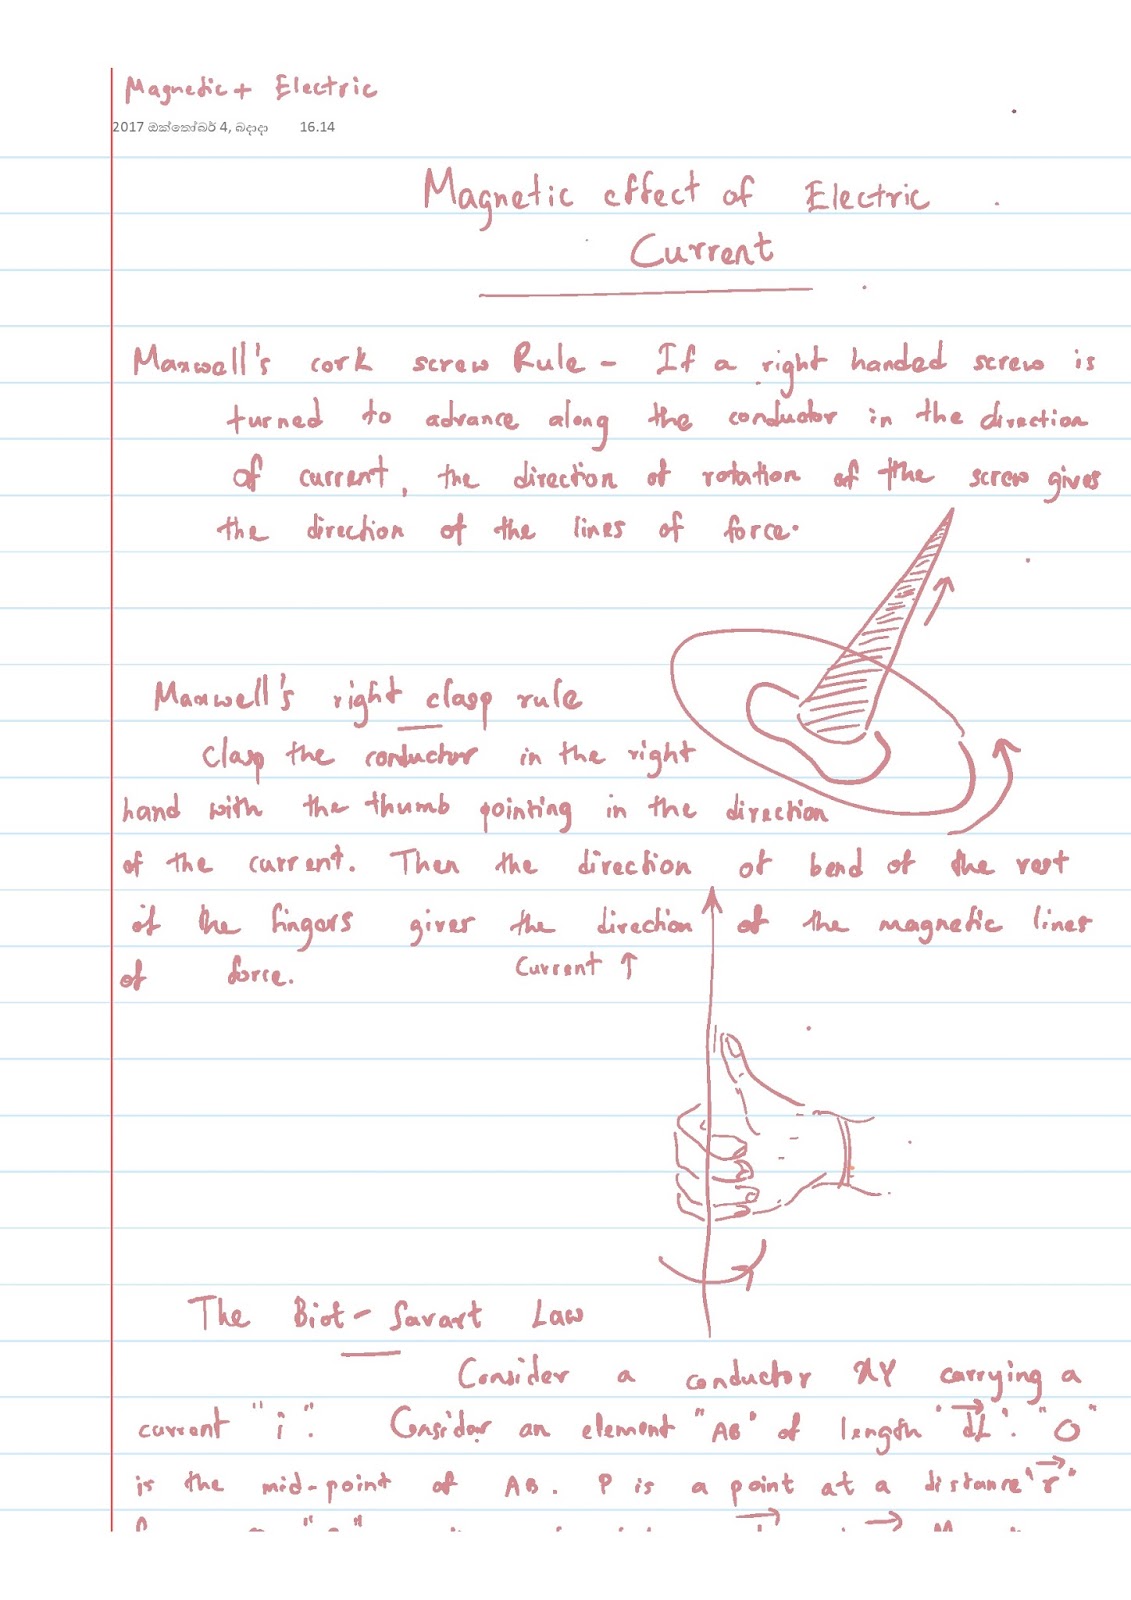 Magnetic + Electric
2017 ඔක්තෝබර් 4, බදාදා 16.14
Magnetic effect of Electric
Current
Maxwell's cork screw Rule - If a right handed screw is
turned to advance along the conductor in the direction
of current, the direction of rotation of the screw gives
the direction of the lines of force.
Maxwell's right clasp rule
Clasp the conductor in the right
hand with the thumb pointing in the direction
of the current. Then the direction of bend of the rest
of the fingers gives the direction of the magnetic lines
of force.
Current ↑
The Biot-Savart Law
Consider a conductor XY carrying a
current "i". Consider an element "AB" of length "dL". "O"
is the mid-point of AB. P is a point at a distance "r"